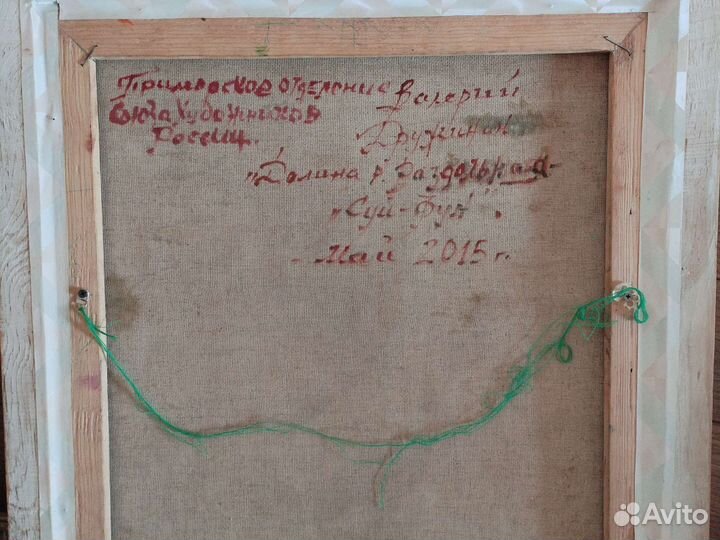 Приморское отделение
Союза Художников
России.
Валерий
Дружинин
"Долина р. Раздольная-
"Суй-Фун".
Май 2015 г.
Avito